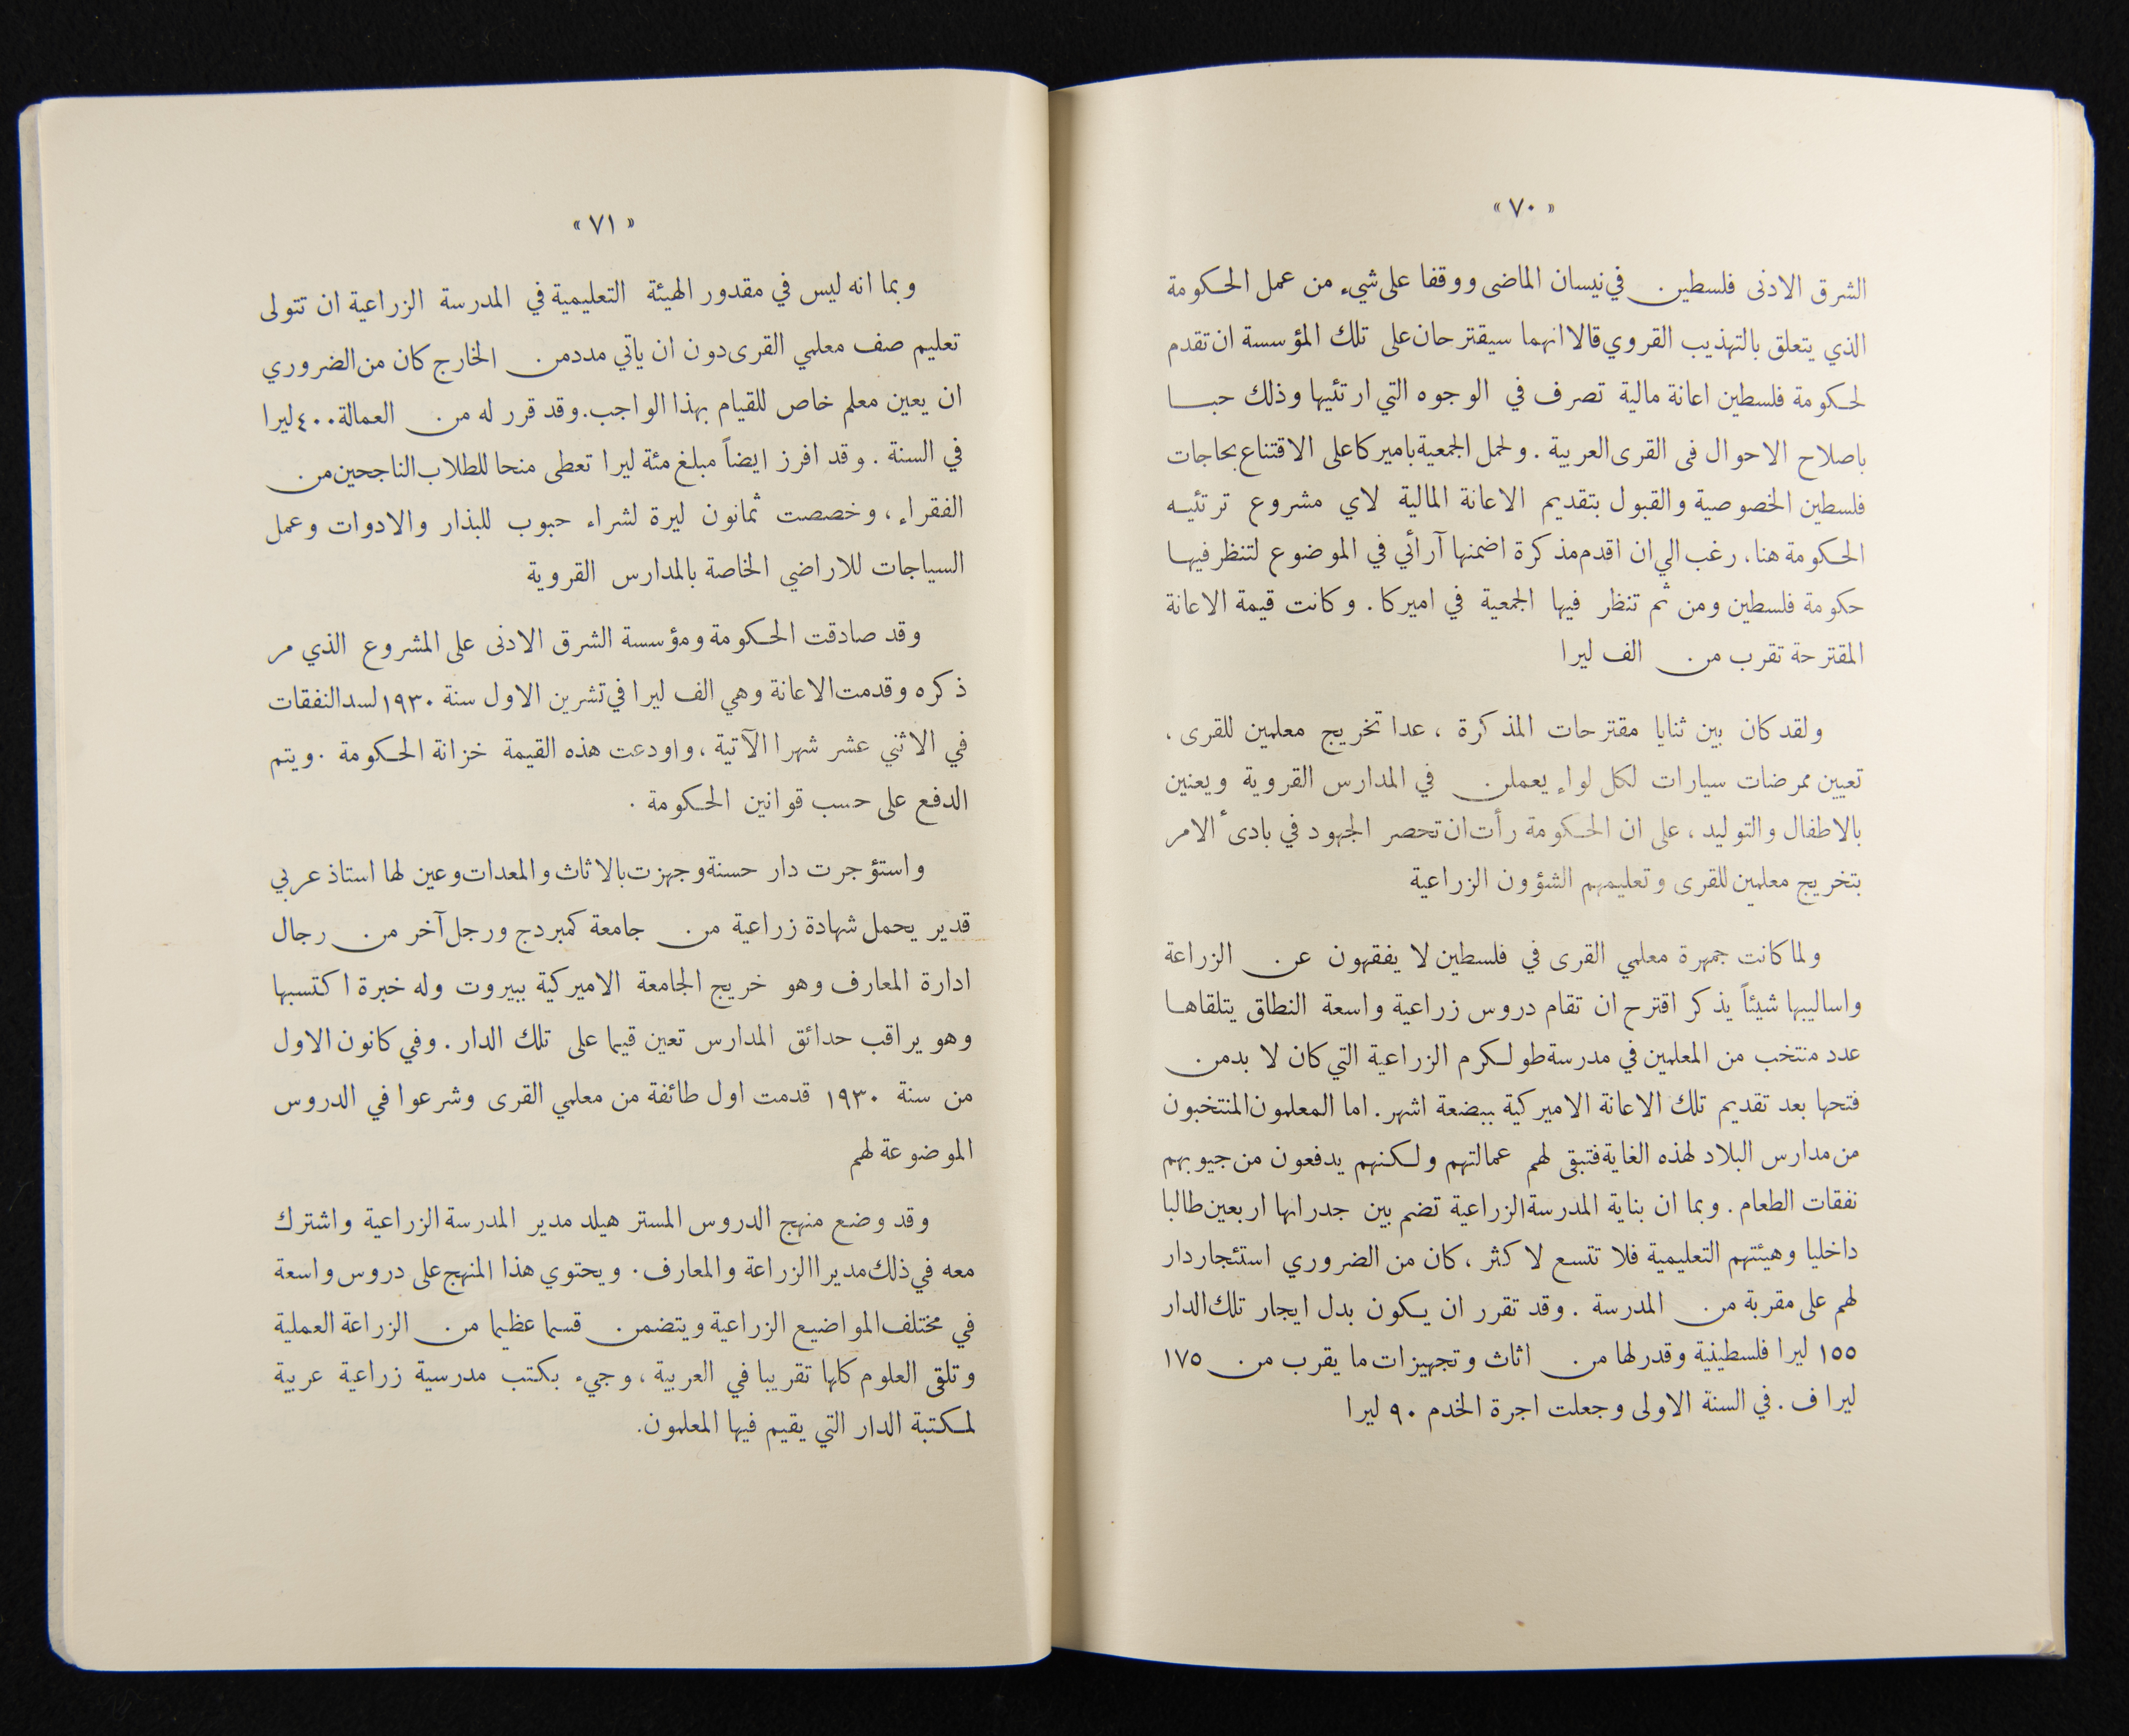 « ٧٠ »
الشرق الادنى فلسطين في نيسان الماضى ووقفا على شيء من عمل الحكومة
الذي يتعلق بالتهذيب القروي قالا انهما سيقترحان على تلك المؤسسة ان تقدم
لحكومة فلسطين اعانة مالية تصرف في الوجوه التي ارتئيها وذلك حبا
باصلاح الاحوال فى القرى العربية . ولحمل الجمعية باميركا على الاقتناع بحاجات
فلسطين الخصوصية والقبول بتقديم الاعانة المالية لاي مشروع ترتئيه
الحكومة هنا، رغب الي ان اقدم مذكرة اضمنها آرائي في الموضوع لتنظر فيها
حكومة فلسطين ومن ثم تنظر فيها الجمعية في اميركا . وكانت قيمة الاعانة
المقترحة تقرب من الف ليرا
ولقد كان بين ثنايا مقترحات المذكرة ، عدا تخريج معلمين للقرى ،
تعيين ممرضات سيارات لكل لواء يعملن في المدارس القروية ويعنين
بالاطفال والتوليد ، على ان الحكومة رأت ان تحصر الجهود في بادىٔ الامر
بتخريج معلمين للقرى وتعليمهم الشؤون الزراعية
ولما كانت جمهرة معلمي القرى في فلسطين لا يفقهون عن الزراعة
واساليبها شيئاً يذكر اقترح ان تقام دروس زراعية واسعة النطاق يتلقاها
عدد منتخب من المعلمين في مدرسة طولكرم الزراعية التي كان لا بد من
فتحها بعد تقديم تلك الاعانة الاميركية ببضعة اشهر . اما المعلمون المنتخبون
من مدارس البلاد لهذه الغاية فتبقى لهم عمالتهم ولكنهم يدفعون من جيوبهم
نفقات الطعام . وبما ان بناية المدرسة الزراعية تضم بين جدرانها اربعين طالبا
داخليا وهيئتهم التعليمية فلا تتسع لاكثر ، كان من الضروري استئجار دار
لهم على مقربة من المدرسة . وقد تقرر ان يكون بدل ايجار تلك الدار
١٥٥ ليرا فلسطينية وقدر لها من اثاث وتجهيزات ما يقرب من ١٧٥
ليرا ف . في السنة الاولى وجعلت اجرة الخدم ٩٠ ليرا
« ٧١ »
وبما انه ليس في مقدور الهيئة التعليمية في المدرسة الزراعية ان تتولى
تعليم صف معلمي القرى دون ان ياتي مدد من الخارج كان من الضروري
ان يعين معلم خاص للقيام بهذا الواجب. وقد قرر له من العمالة ٤٠٠ ليرا
في السنة . وقد افرز ايضاً مبلغ مئة ليرا تعطى منحا للطلاب الناجحين من
الفقراء ، وخصصت ثمانون ليرة لشراء حبوب للبذار والادوات وعمل
السياجات للاراضي الخاصة بالمدارس القروية
وقد صادقت الحكومة ومؤسسة الشرق الادنى على المشروع الذي مر
ذكره وقدمت الاعانة وهي الف ليرا في تشرين الاول سنة ١٩٣٠ لسد النفقات
في الاثني عشر شهرا الآتية ، واودعت هذه القيمة خزانة الحكومة . ويتم
الدفع على حسب قوانين الحكومة .
واستؤجرت دار حسنة وجهزت بالاثاث والمعدات وعين لها استاذ عربي
قدير يحمل شهادة زراعية من جامعة كمبردج ورجل آخر من رجال
ادارة المعارف وهو خريج الجامعة الاميركية ببيروت وله خبرة اكتسبها
وهو يراقب حدائق المدارس تعين قيما على تلك الدار . وفي كانون الاول
من سنة ١٩٣٠ قدمت اول طائفة من معلمي القرى وشرعوا في الدروس
الموضوعة لهم
وقد وضع منهج الدروس المستر هيلد مدير المدرسة الزراعية واشترك
معه في ذلك مديرا الزراعة والمعارف . ويحتوي هذا المنهج على دروس واسعة
في مختلف المواضيع الزراعية ويتضمن قسما عظيما من الزراعة العملية
وتلقى العلوم كلها تقريبا في العربية ، وجيء بكتب مدرسية زراعية عربية
لمكتبة الدار التي يقيم فيها المعلمون.